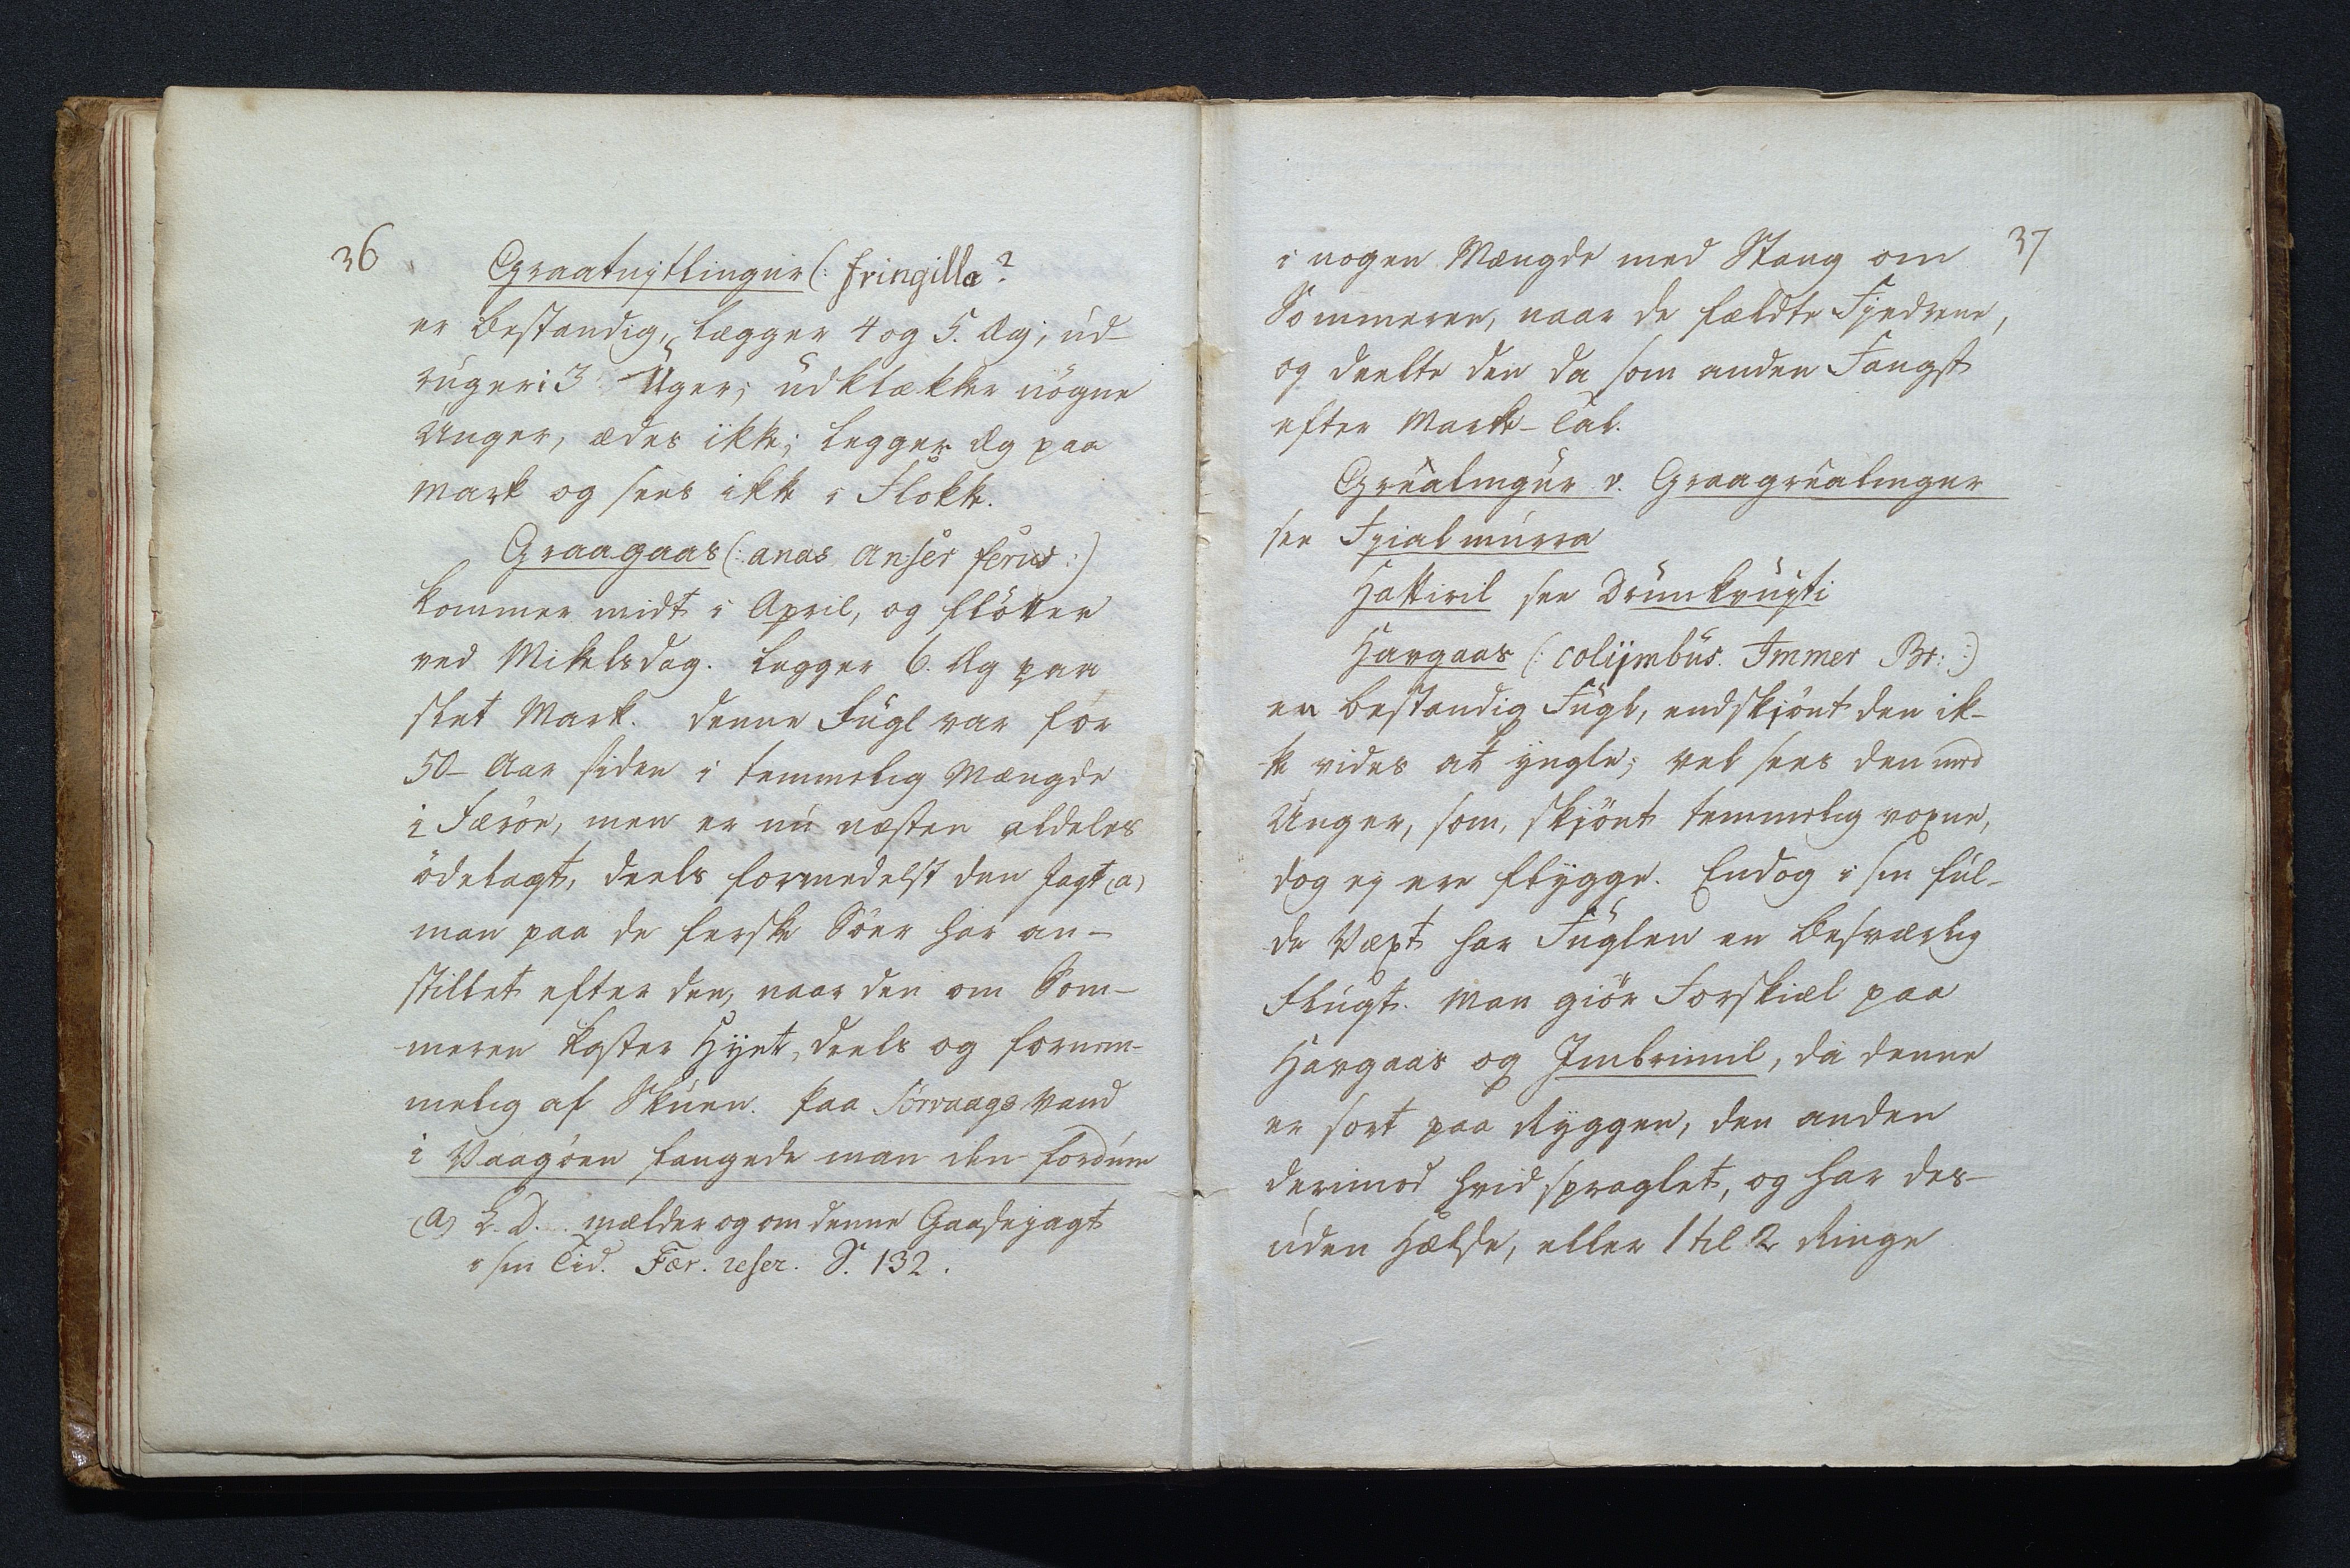 36
Graatujtlingur (: fringilla?
er bestandig, lægger 4 og 5. Æg; ud-
ruger i 3 Uger; udklækker nögne
Unger, ædes ikke; legger Æg paa
Mark og sees ikke i Flokke.
Graagaas (: anas anser ferus :)
kommer midt i April, og flötter
ved Mikelsdag. legger 6. Æg paa
slet Mark. denne Fugl var for
50- Aar siden i temmelig Mængde
i Færöe, men er nu næsten aldeles
ödelagt, deels formedelst den Jagt (a)
man paa de ferske Söer har an-
stillet efter den, naar den om Som-
meren kaster Hynt, deels og fornem-
melig af Skuen. Paa Sörvaags Vand
i Vaagöen fangede man den fordum
(a) L. D. melder og om denne Gaasejagt
i sin Tid. Fær. reser. S. 132.
37
i nogen Mængde med Stang om
Sommeren, naar de fældte Fjedrene,
og deelte den da som anden Fangst
efter Marke-Tal.
Grealingur v. Graagrealingur
see Fjalmurra
Hastiril see Drunkvujti
Havgaas (: colijmbus. Immer Br: :)
en bestandig Fugl, endskjönt den ik-
ke vides at yngle; vel sees den med
Unger, som, skjönt temmelig voxne,
dog ej ere flygge. Endog i sin ful-
de Væxt har Fuglen en besværlig
Flugt. Man giör Forskiæl paa
Havgaas og Imbrimil, da denne
er sort paa Ryggen, den anden
derimod hvidspraglet, og har des-
uden Hælse, eller 1 til 2 Ringe